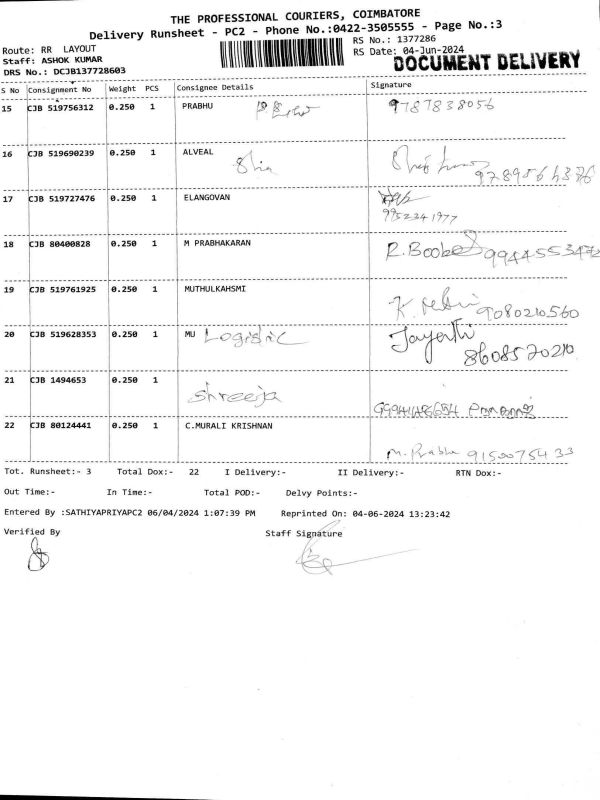 THE PROFESSIONAL COURIERS, COIMBATORE
Delivery Runsheet - PC2 - Phone No.:0422-3505555 - Page No.:3
Route: RR LAYOUT
Staff: ASHOK KUMAR
DRS No.: DCJB137728603
RS No.: 1377286
RS Date: 04-Jun-2024
DOCUMENT DELIVERY
S No Consignment No Weight PCS Consignee Details Signature
15 CJB 519756312 0.250 1 PRABHU 9787838056
16 CJB 519690239 0.250 1 ALVEAL
17 CJB 519727476 0.250 1 ELANGOVAN
9952341977
18 CJB 80400828 0.250 1 M PRABHAKARAN R.Boobe
19 CJB 519761925 0.250 1 MUTHULKAHSMI
9080210560
20 CJB 519628353 0.250 1 MU Logistic Jayanthi
8608570210
21 CJB 1494653 0.250 1
shreeja
22 CJB 80124441 0.250 1 C.MURALI KRISHNAN
M. Prabha 9150075433
Tot. Runsheet:- 3 Total Dox:- 22 I Delivery:- II Delivery:- RTN Dox:-
Out Time:- In Time:- Total POD:- Delvy Points:-
Entered By :SATHIYAPRIYAPC2 06/04/2024 1:07:39 PM Reprinted On: 04-06-2024 13:23:42
Verified By Staff Signature